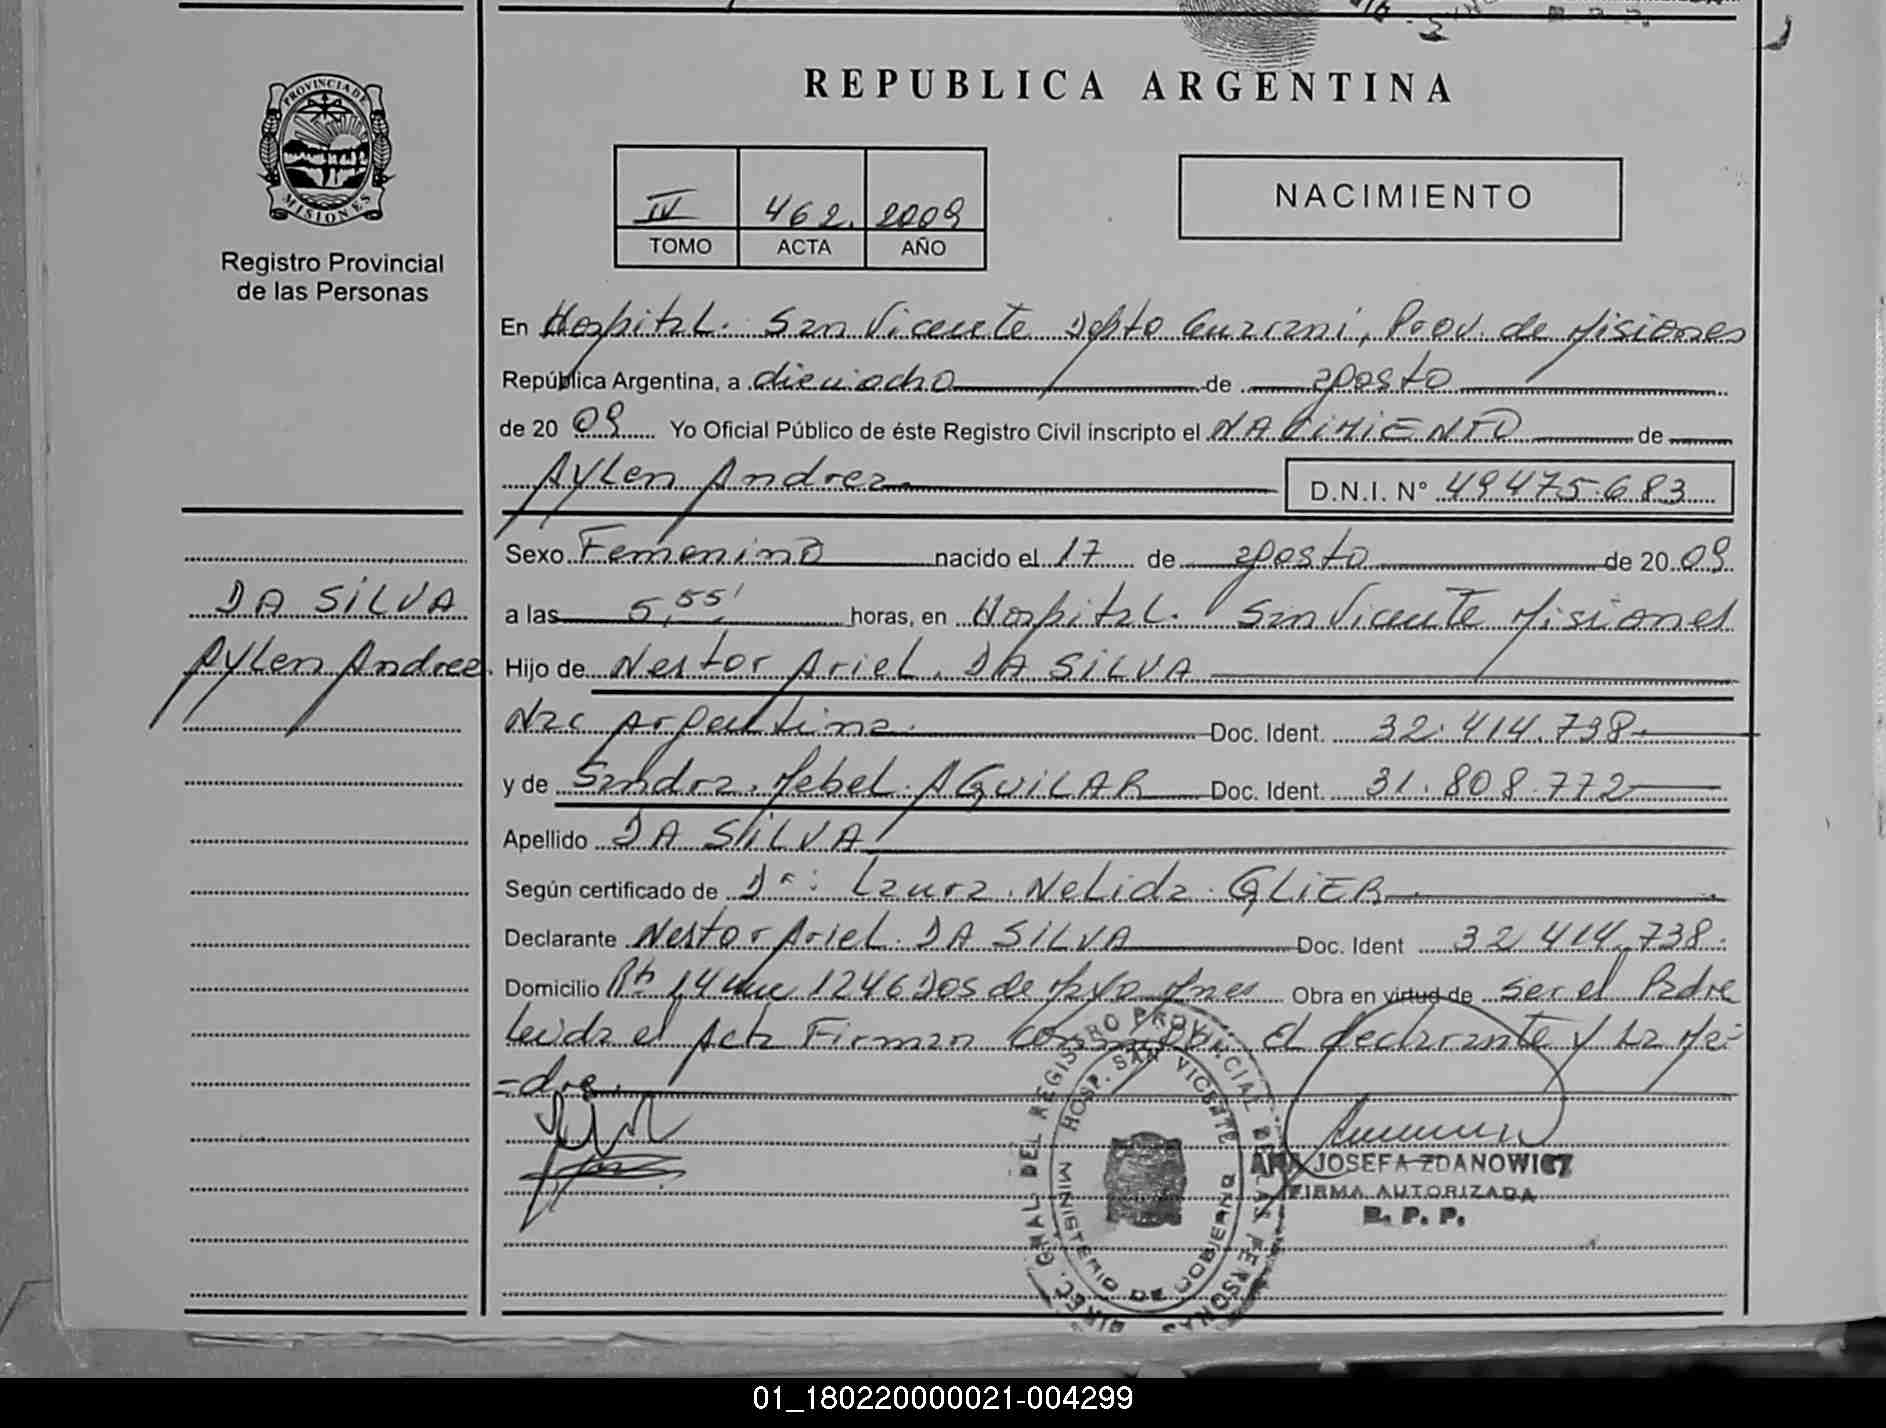 REPUBLICA ARGENTINA
PROVINCIA DE
MISIONES
Registro Provincial
de las Personas
IV 462. 2009
TOMO ACTA AÑO
NACIMIENTO
En Hospital. San Vicente Dpto Guarani, Prov. de Misiones
República Argentina, a dieciocho de agosto
de 20 09 Yo Oficial Público de éste Registro Civil inscripto el NACIMIENTO de
Aylen Andrea D.N.I. N° 49475.683
Sexo Femenino nacido el 17 de agosto de 20 09
DA SILVA
Aylen Andrea.
a las 5,55' horas, en Hospital. San Vicente Misiones
Hijo de Nestor Ariel. DA SILVA
Nac Argentina. Doc. Ident. 32.414.738
y de Sandra. Mabel. AGUILAR Doc. Ident. 31.808.772
Apellido DA SILVA
Según certificado de Dra: Laura. Nelida. GLIER
Declarante Nestor Ariel. DA SILVA Doc. Ident 32.414.738.
Domicilio 14 1246 Dos de Mayo Mnes Obra en virtud de Ser el Padre
Leida el Acta Firman el declarante y La Ma=
=dre.
DIREC. GRAL. DEL REGISTRO PROVINCIAL DE LAS PERSONAS
HOSP. SAN VICENTE
MINISTERIO DE GOBIERNO
ANA JOSEFA ZDANOWICZ
FIRMA AUTORIZADA
R. P. P.
01_180220000021-004299